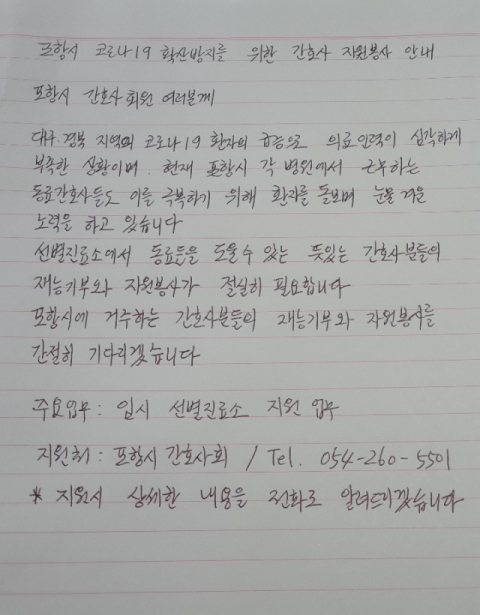 포항시 코로나19 확산방지를 위한 간호사 자원봉사 안내
포항시 간호사회원 여러분께
대구.경북 지역의 코로나19 환자의 급증으로 의료인력이 심각하게
부족한 상황이며. 현재 포항시 각 병원에서 근무하는
동료간호사들도 이를 극복하기 위해 환자를 돌보며 눈물겨운
노력을 하고 있습니다
선별진료소에서 동료들을 도울수 있는 뜻있는 간호사분들의
재능기부와 자원봉사가 절실히 필요합니다
포항시에 거주하는 간호사분들의 재능기부와 자원봉사를
간절히 기다리겠습니다
주요업무 : 임시 선별진료소 지원 업무
지원처 : 포항시간호사회 / Tel. 054-260-5501
* 지원시 상세한 내용을 전화로 알려드리겠습니다